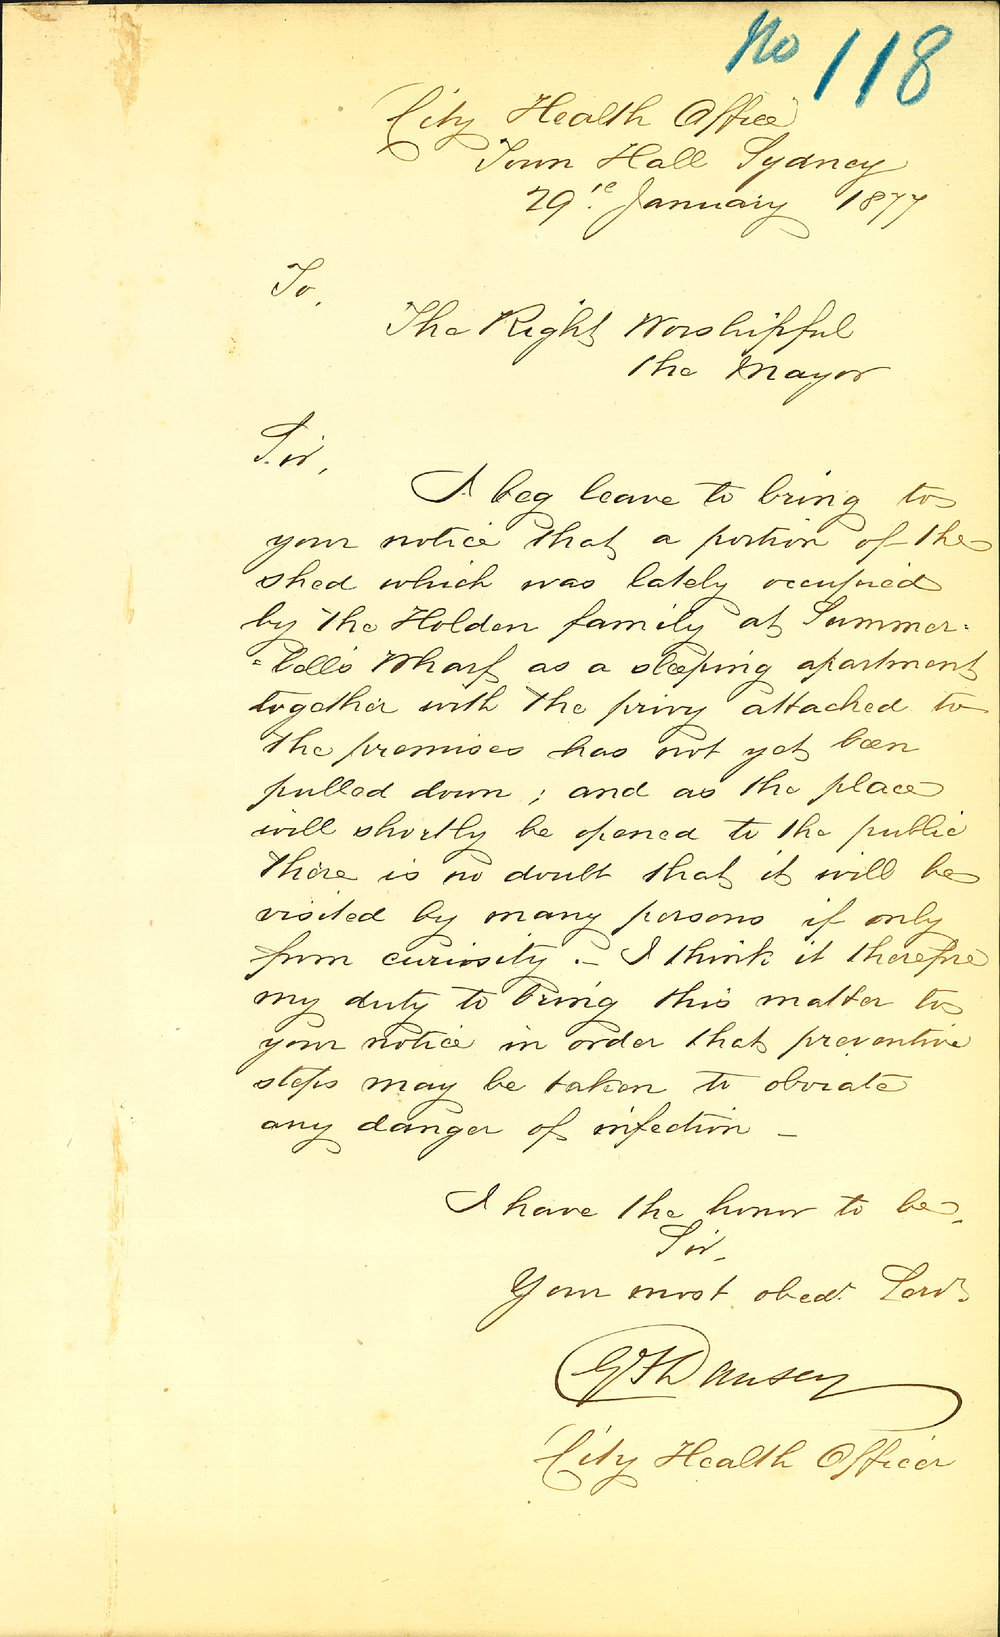 No 118
City Health Office
Town Hall Sydney
29th January 1877
To,
The Right Worshipful
the Mayor
Sir,
I beg leave to bring to
your notice that a portion of the
shed which was lately occupied
by the Holden family at Summer=
=bell's Wharf as a sleeping apartment
together with the privy attached to
the premises has not yet been
pulled down; and as the place
will shortly be opened to the public
there is no doubt that it will be
visited by many persons if only
from curiosity. – I think it therefore
my duty to bring this matter to
your notice in order that preventive
steps may be taken to obviate
any danger of infection –
I have the honor to be,
Sir,
Your most obedt. Servt.
G F Dansey
City Health Officer